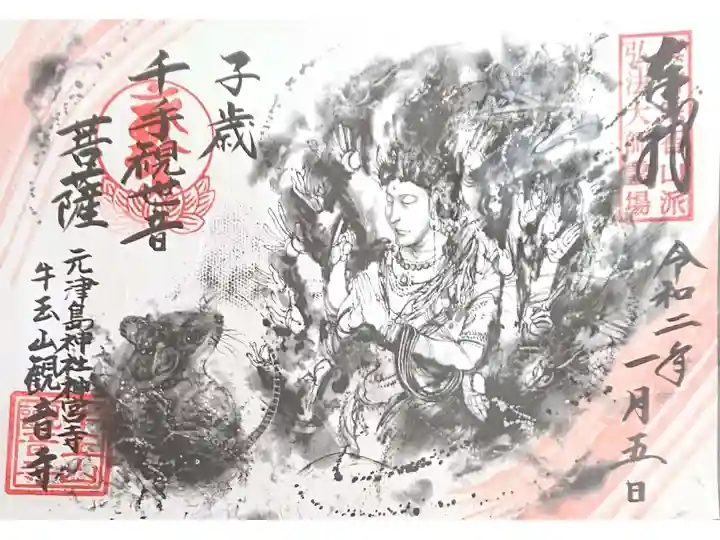 奉拝
山派
弘法大師霊場
令和二年
一月五日
子歳
千手観世音
菩薩
元津島神社神宮寺
牛玉山観音寺